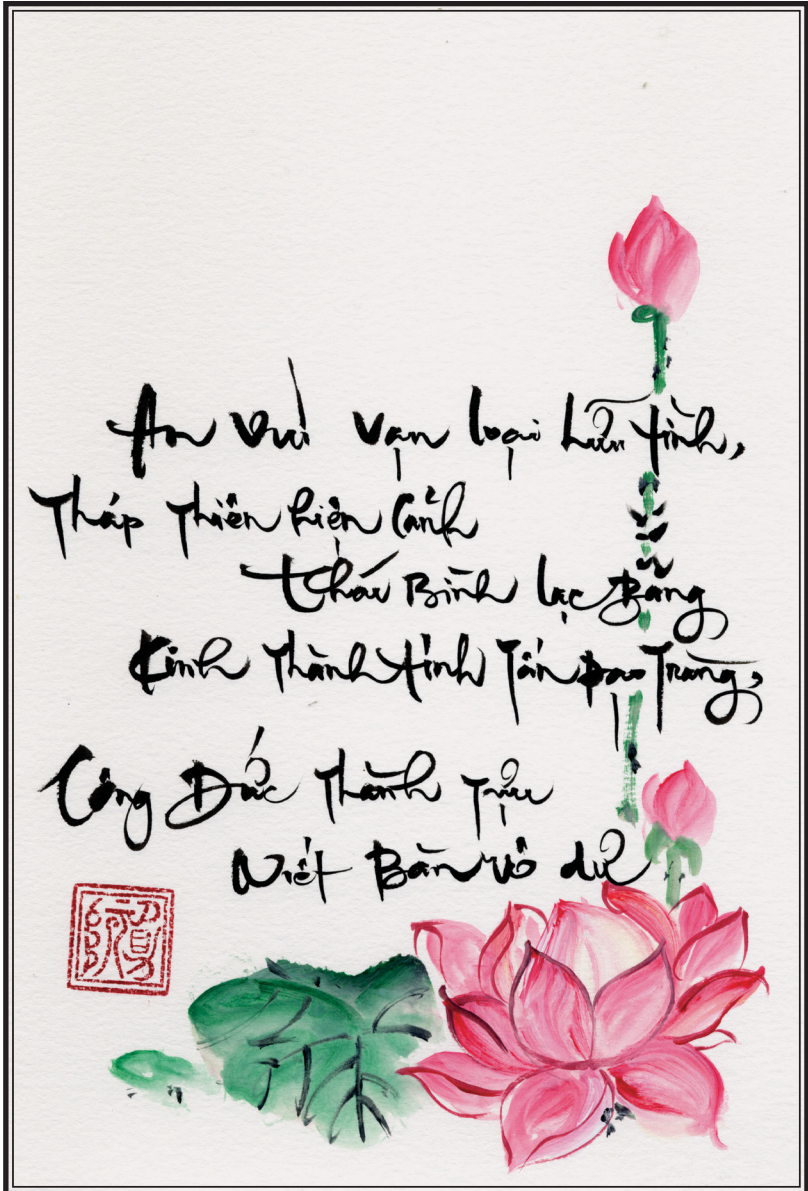 An vui vạn loại hữu tình,
Tháp Thiên hiện Cảnh
Thái Bình lạc Bang
Kinh Thành tỉnh Tấn Đạo Tràng,
Công Đức Thành Tựu
Niết Bàn vô dư